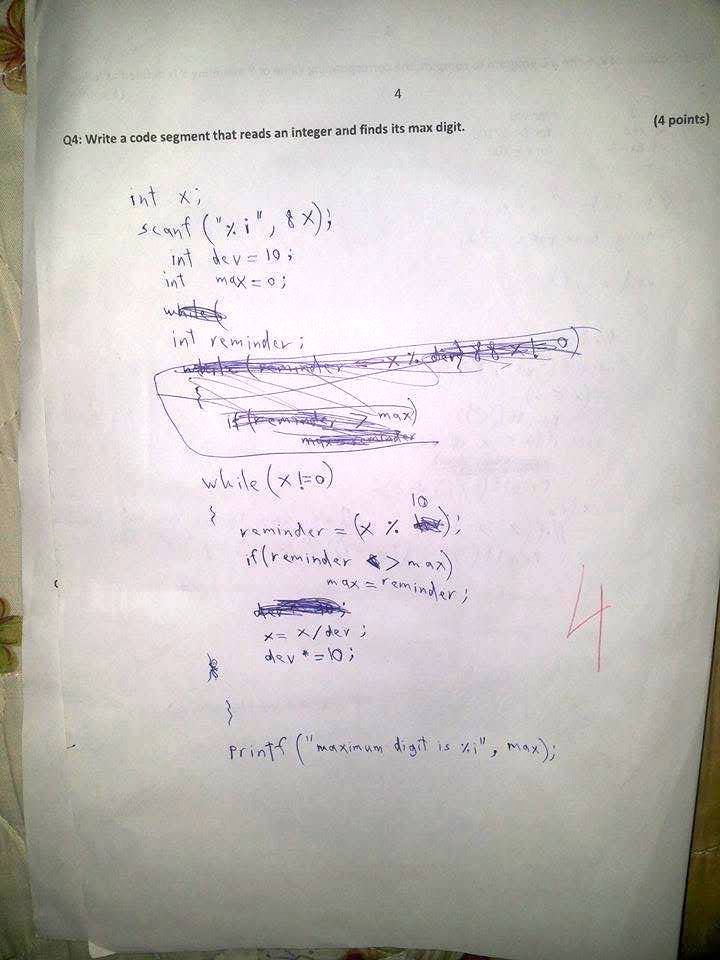 4
Q4: Write a code segment that reads an integer and finds its max digit.
(4 points)
int x;
scanf ("%i", &x);
int dev = 10;
int max = 0;
while (
int reminder;
while (reminder = x % dev) && x != 0)
{
if (reminder > max)
max = reminder
while (x != 0)
{
10
reminder = (x % );
if (reminder > max)
max = reminder;
x = x/dev;
dev *= 10;
}
printf ("maximum digit is %i", max);
4